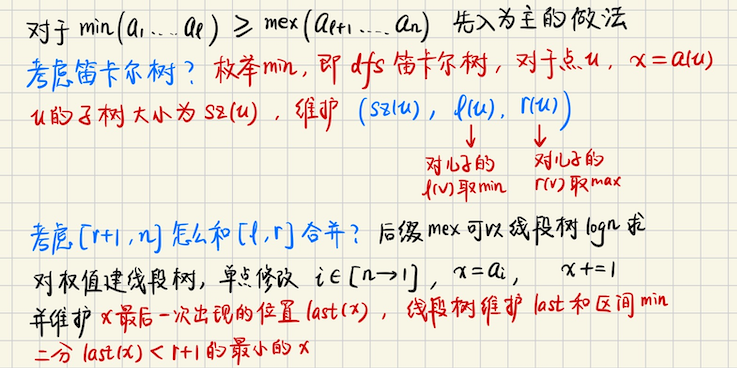 对于 min(a₁ … aℓ) ≥ mex(aℓ₊₁ … aₙ) 先入为主的做法
考虑笛卡尔树? 枚举min, 即 dfs 笛卡尔树, 对于点u, x=a(u)
u的子树大小为 sz(u), 维护 (sz(u), ℓ(u), r(u))
↓ ↓
对儿子的 对儿子的
ℓ(v)取min r(v)取max
考虑[r+1,n]怎么和[ℓ,r]合并? 后缀mex可以线段树 logn 求
对权值建线段树, 单点修改 i∈[n→1], x=aᵢ, x+=1
并维护 x最后一次出现的位置 last(x), 线段树维护 last和区间min
二分 last(x) < r+1 的最小的 x